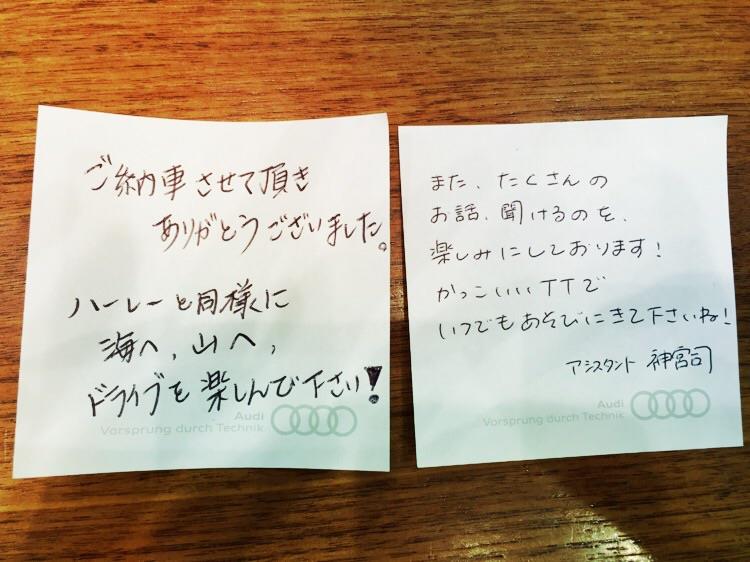 ご納車させて頂き
ありがとうございました。
ハーレーと同様に
海へ、山へ、
ドライブを楽しんで下さい!
Audi
Vorsprung durch Technik
また、たくさんの
お話、聞けるのを、
楽しみにしております!
かっこいいTTで
いつでもあそびにきて下さいね!
アシスタント 神宮司
Audi
Vorsprung durch Technik